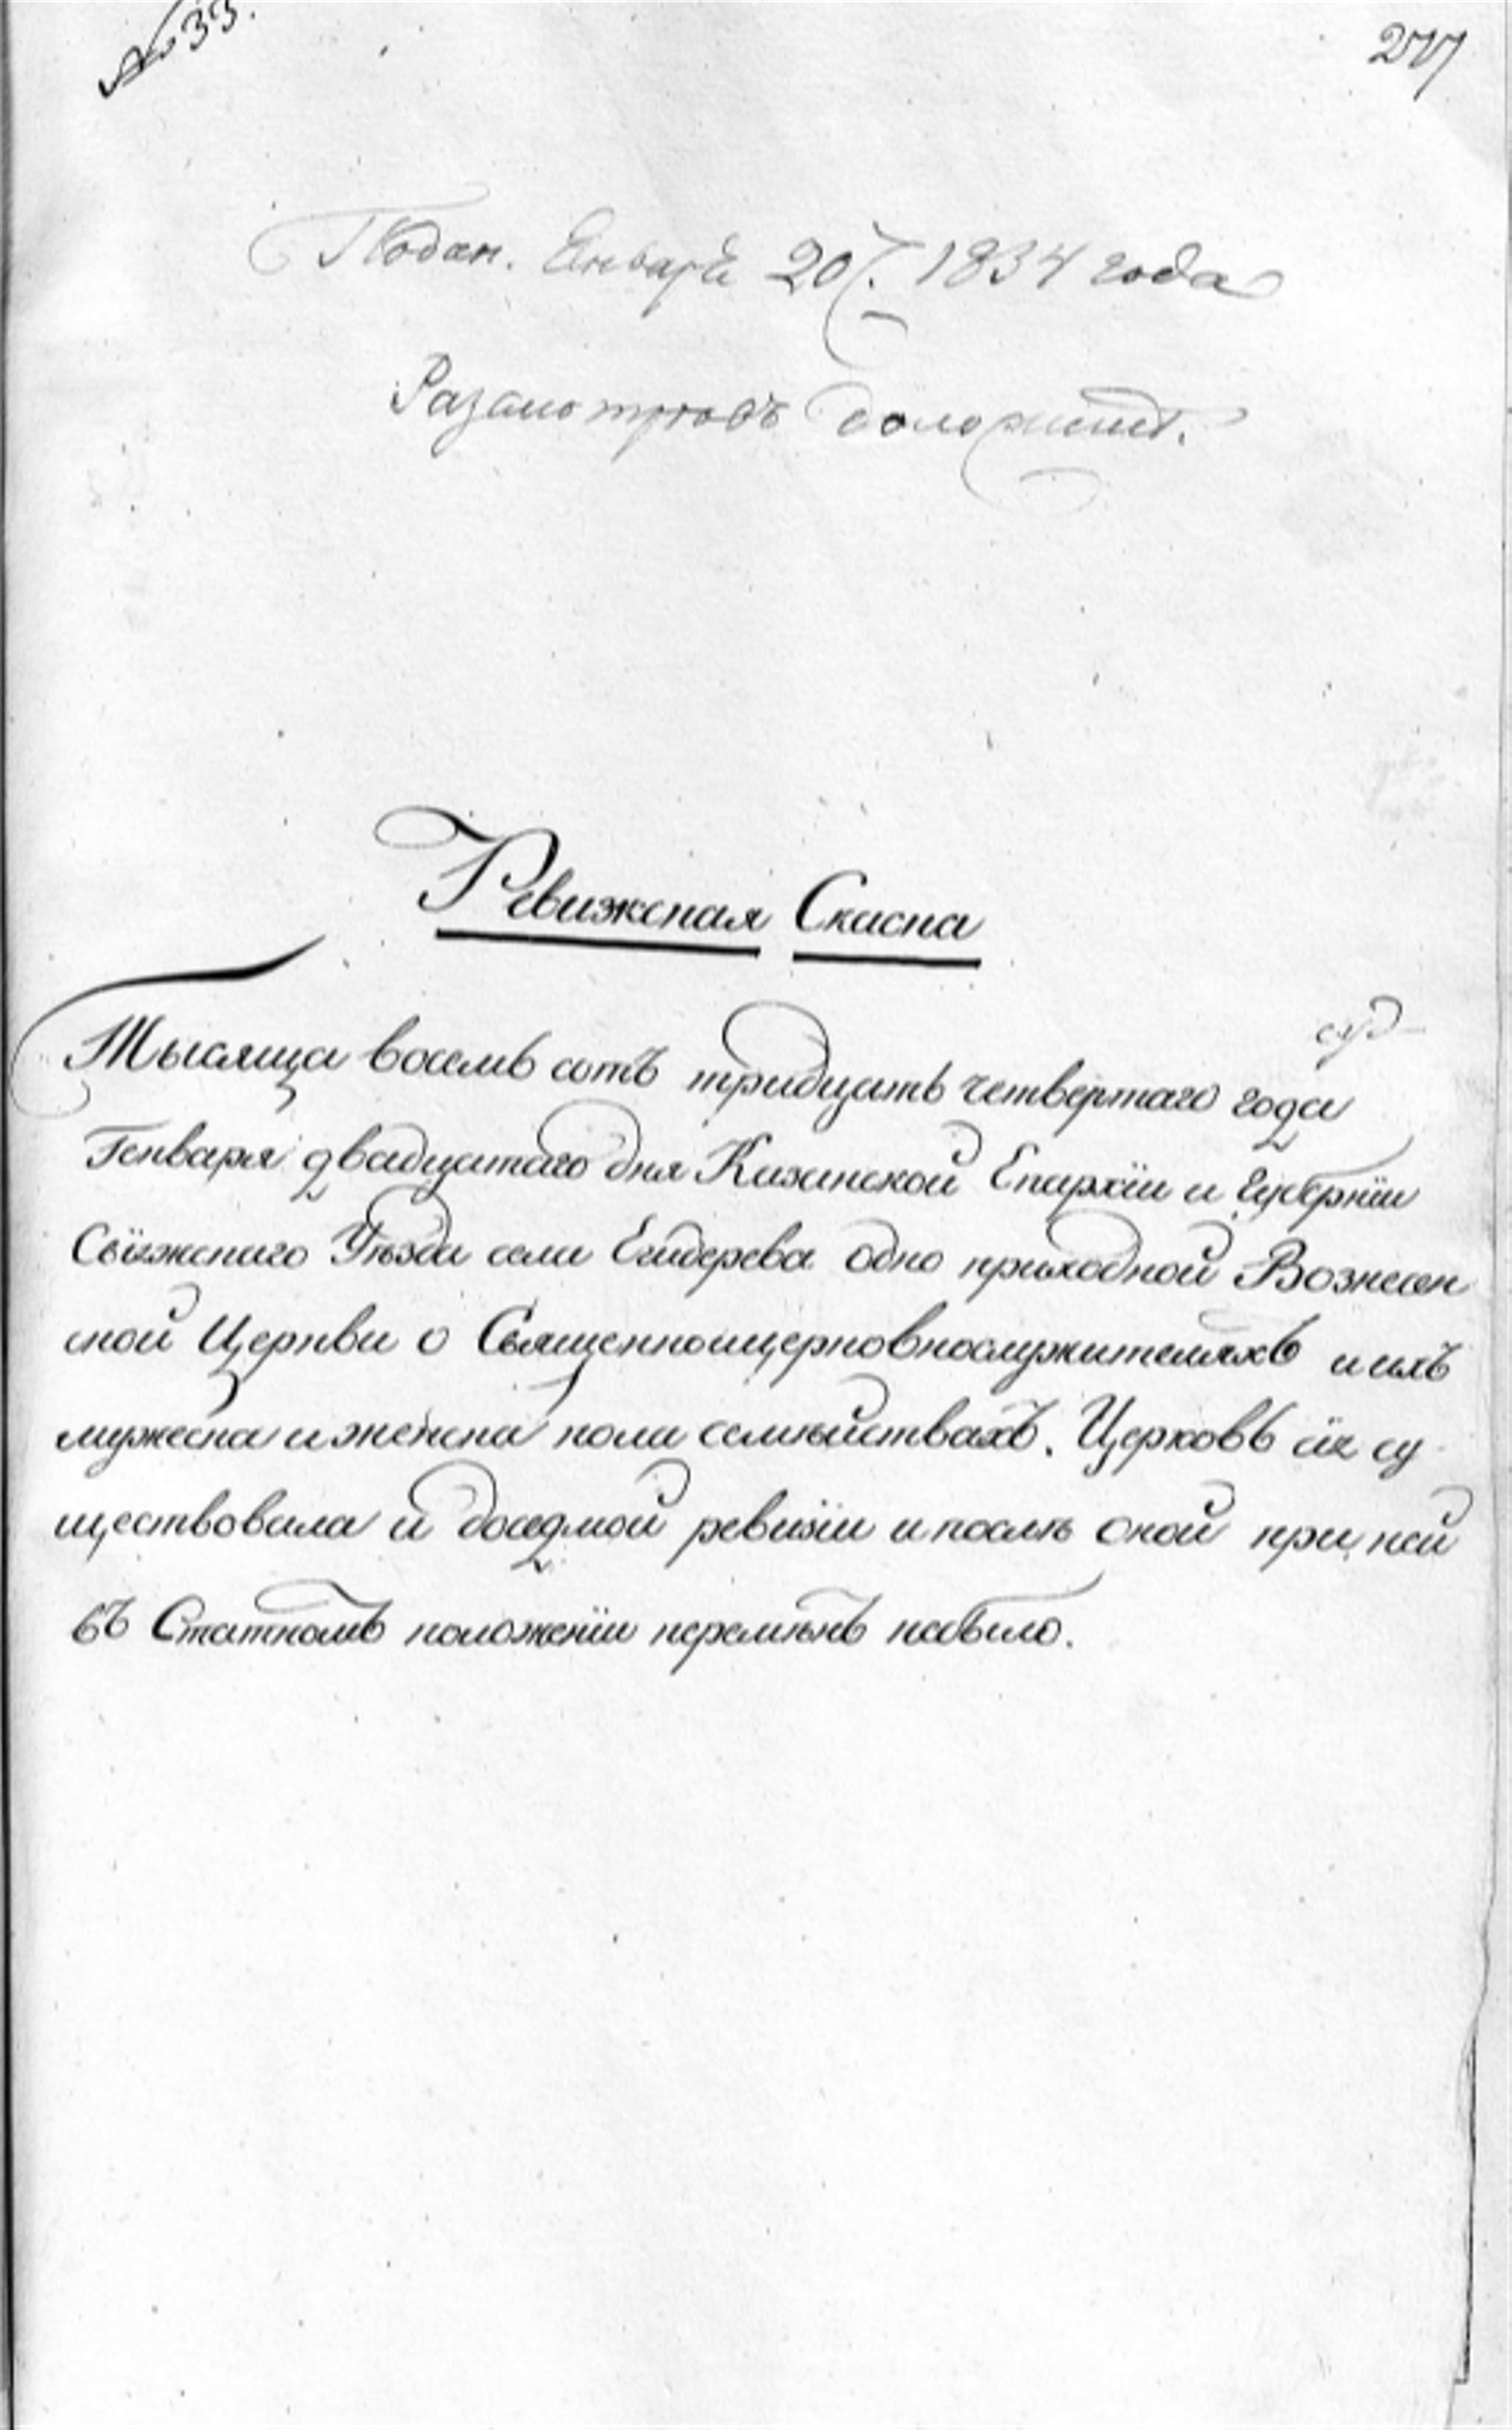 № 33.
277
Подан. Генваря 20. 1834 года
Разсмотревъ доложить.
Ревижская Скаска
Тысяща восемь сотъ тридцать четвертаго года
Генваря двадцатаго дня Казанской Епархїи и Губернїи
Свїяжскаго Уѣзда села Егидерева одно приходной Вознесен
ской Церкви о Священноицерковнослужителяхъ и ихъ
мужеска и женска пола семѣйствахъ. Церковь сїя су
ществовала и доседмой ревизїи и послѣ оной при ней
въ Статномъ положенїи перемѣнъ небыло.